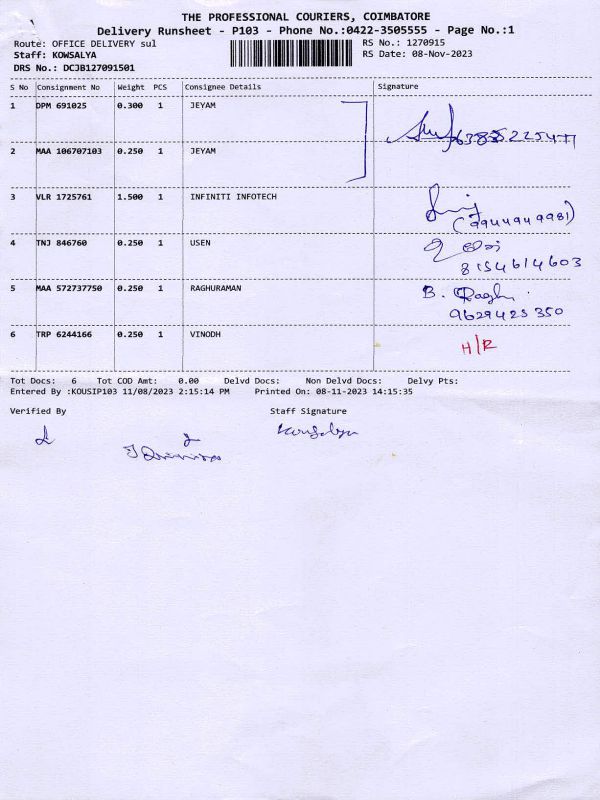 THE PROFESSIONAL COURIERS, COIMBATORE
Delivery Runsheet - P103 - Phone No.:0422-3505555 - Page No.:1
Route: OFFICE DELIVERY sul RS No.: 1270915
Staff: KOWSALYA RS Date: 08-Nov-2023
DRS No.: DCJB127091501
S No Consignment No Weight PCS Consignee Details Signature
1 DPM 691025 0.300 1 JEYAM
2 MAA 106707103 0.250 1 JEYAM
3 VLR 1725761 1.500 1 INFINITI INFOTECH
(9944949981)
4 TNJ 846760 0.250 1 USEN
8154614603
5 MAA 572737750 0.250 1 RAGHURAMAN B. Raghu
9629425350
6 TRP 6244166 0.250 1 VINODH H/R
Tot Docs: 6 Tot COD Amt: 0.00 Delvd Docs: Non Delvd Docs: Delvy Pts:
Entered By :KOUSIP103 11/08/2023 2:15:14 PM Printed On: 08-11-2023 14:15:35
Verified By Staff Signature
Kowsalya